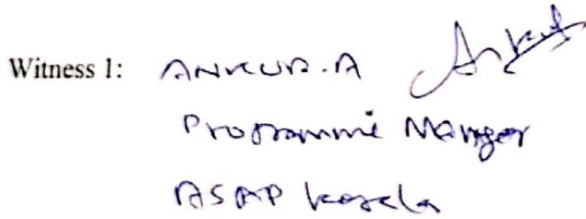 Witness 1: ANKUR.A Ankur
Programme Manger
ASAP Kerala